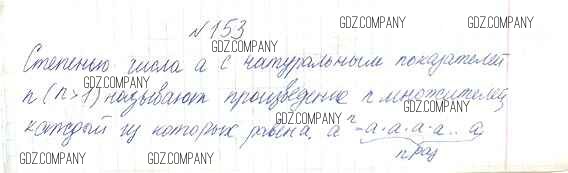 №153
GDZ.COMPANY GDZ.COMPANY
GDZ.COMPANY
Степенью числа a с натуральным показателей
GDZ.COMPANY GDZ.COMPANY
n (n>1) называют произведение n множителей,
GDZ.COMPANY GDZ.COMPANY
каждый из которых равна. aⁿ-a·a·a·a..a
GDZ.COMPANY GDZ.COMPANY GDZ.COMPANY
n раз